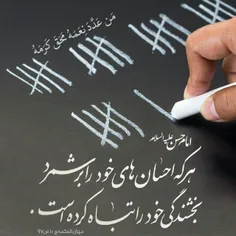 مَن عَدَّدَ نِعَمَهُ مَحَقَ كَرَمَهُ
امام حسن علیه‌السلام
هر که احسان های خود را بر شمرد
بخشندگی خود را تباه کرده است.